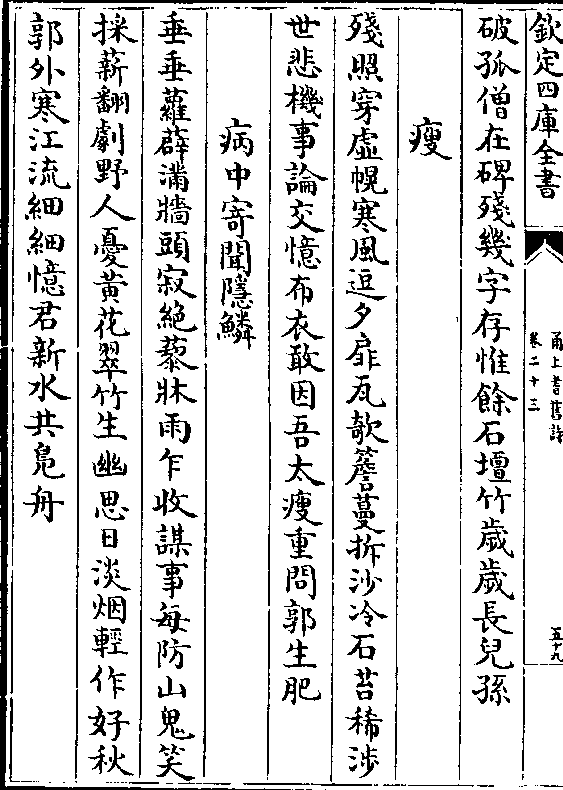 欽定四庫全書
甬上耆舊詩
卷二十三
五十九
破孤僧在碑殘幾字存惟餘石壇竹歲歲長兒孫
瘦
殘照穿虛幌寒風逗夕扉瓦欹簷蔓拆沙冷石苔稀涉
世悲機事論交憶布衣敢因吾太瘦重問郭生肥
病中寄聞隱鱗
垂垂蘿薜滿牆頭寂絶藜牀雨乍收謀事每防山鬼笑
採薪翻劇野人憂黃花翠竹生幽思日淡烟輕作好秋
郭外寒江流細細憶君新水共鳬舟